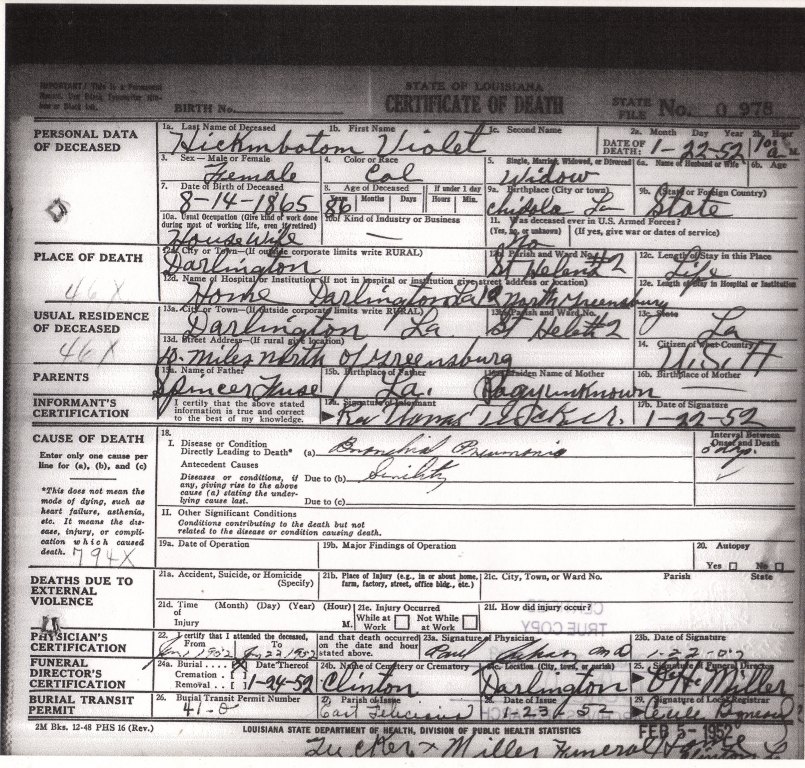 IMPORTANT! This is a Permanent
Record. Use Black Typewriter Rib-
bon or Black Ink.
STATE OF LOUISIANA
BIRTH No. CERTIFICATE OF DEATH STATE FILE No. 0 978
PERSONAL DATA OF DECEASED
1a. Last Name of Deceased 1b. First Name 1c. Second Name 2a. Month Day Year 2b. Hour
Hickmbotom Violet DATE OF DEATH: 1-22-52 10 a M.
3. Sex—Male or Female 4. Color or Race 5. Single, Married, Widowed, or Divorced 6a. Name of Husband or Wife 6b. Age
Female Col Widow
7. Date of Birth of Deceased 8. Age of Deceased If under 1 day 9a. Birthplace (City or town) 9b. (State or Foreign Country)
8-14-1865 86 Years Months Days Hours Min. La State
10a. Usual Occupation (Give kind of work done during most of working life, even if retired) 10b. Kind of Industry or Business 11. Was deceased ever in U.S. Armed Forces?
(Yes, no, or unknown) (If yes, give war or dates of service)
House Wife — No
PLACE OF DEATH
12a. City or Town—(If outside corporate limits write RURAL) 12b. Parish and Ward No. 12c. Length of Stay in this Place
Darlington St Helena 2 Life
46X
12d. Name of Hospital or Institution (If not in hospital or institution give street address or location) 12e. Length of Stay in Hospital or Institution
Home Darlington La 12 North Greensburg
USUAL RESIDENCE OF DECEASED
13a. City or Town—(If outside corporate limits write RURAL) 13b. Parish and Ward No. 13c. State
Darlington La St Hel 2 La
46X
13d. Street Address—(If rural give location) 14. Citizen of What Country?
miles north of Greensburg U.S.A
PARENTS
15a. Name of Father 15b. Birthplace of Father 16a. Maiden Name of Mother 16b. Birthplace of Mother
Spincer Fuse La. unknown —
INFORMANT'S CERTIFICATION
I certify that the above stated information is true and correct to the best of my knowledge. 17a. Signature of Informant 17b. Date of Signature
Tucker. 1-22-52
CAUSE OF DEATH
Enter only one cause per line for (a), (b), and (c)
*This does not mean the mode of dying, such as heart failure, asthenia, etc. It means the disease, injury, or complication which caused death.
794X
18.
I. Disease or Condition Directly Leading to Death* (a) Bronchial Pneumonia Interval Between Onset and Death
Antecedent Causes
Diseases or conditions, if any, giving rise to the above cause (a) stating the underlying cause last. Due to (b) Senility
Due to (c)
II. Other Significant Conditions
Conditions contributing to the death but not related to the disease or condition causing death.
19a. Date of Operation 19b. Major Findings of Operation 20. Autopsy
Yes No
DEATHS DUE TO EXTERNAL VIOLENCE
21a. Accident, Suicide, or Homicide (Specify) 21b. Place of Injury (e.g., in or about home, farm, factory, street, office bldg., etc.) 21c. City, Town, or Ward No. Parish State
21d. Time of Injury (Month) (Day) (Year) (Hour) M. 21e. Injury Occurred While at Work Not While at Work 21f. How did injury occur?
TRUE COPY
PHYSICIAN'S CERTIFICATION
22. I certify that I attended the deceased, From To and that death occurred on the date and hour stated above. 23a. Signature of Physician 23b. Date of Signature
Paul Jackson MD
FUNERAL DIRECTOR'S CERTIFICATION
24a. Burial Date Thereof 24b. Name of Cemetery or Crematory 24c. Location (City, town, or parish) 25. Signature of Funeral Director
Cremation
Removal 1-24-52 Clinton Darlington Miller
BURIAL TRANSIT PERMIT
26. Burial Transit Permit Number 27. Parish of Issue 28. Date of Issue 29. Signature of Local Registrar
41-0 East Feliciana 1-23-52
2M Bks. 12-48 PHS 16 (Rev.) LOUISIANA STATE DEPARTMENT OF HEALTH, DIVISION OF PUBLIC HEALTH STATISTICS FEB 5-1952
Tucker & Miller Funeral Home